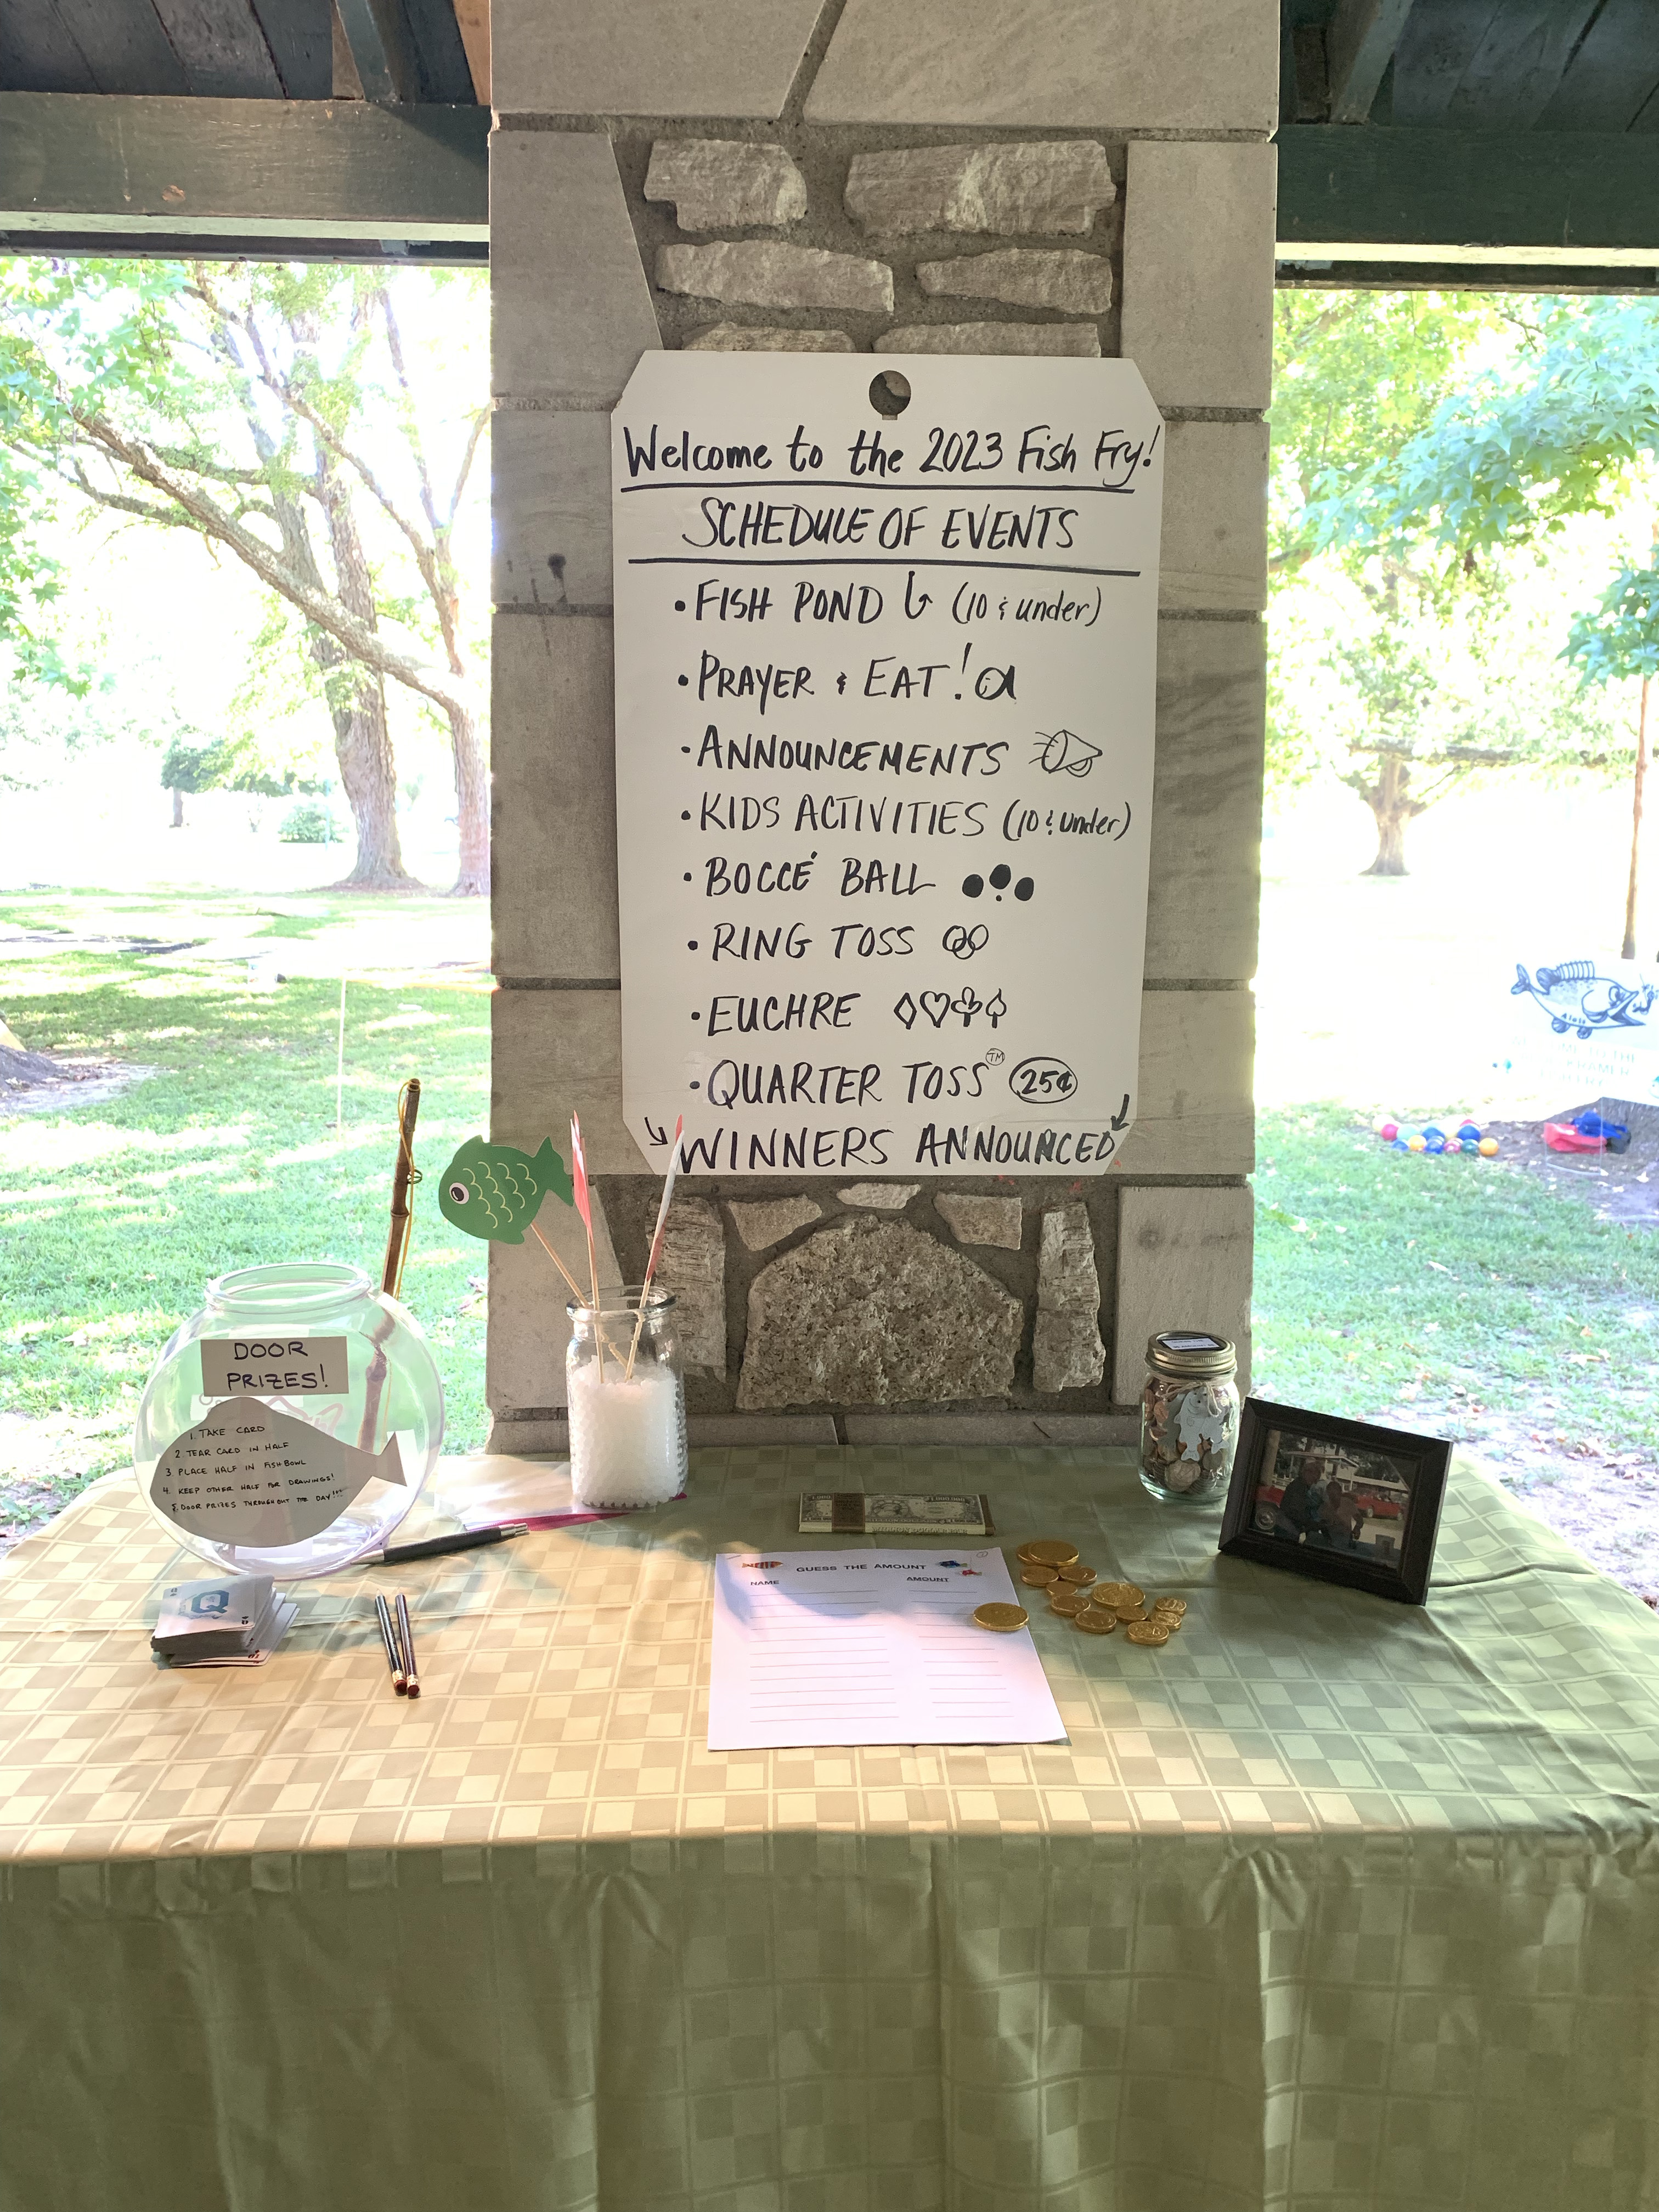 Welcome to the 2023 Fish Fry!
SCHEDULE OF EVENTS
• FISH POND (10 & under)
• PRAYER & EAT!
• ANNOUNCEMENTS
• KIDS ACTIVITIES (10 & under)
• BOCCÉ BALL
• RING TOSS
• EUCHRE
• QUARTER TOSS TM 25¢
WINNERS ANNOUNCED
DOOR
PRIZES!
1. TAKE CARD
2. TEAR CARD IN HALF
3 PLACE HALF IN FISHBOWL
4. KEEP OTHER HALF FOR DRAWINGS!
5. DOOR PRIZES THROUGHOUT THE DAY!!!
Q
GUESS THE AMOUNT
NAME AMOUNT
1,000,000
TO THE
KRAMER